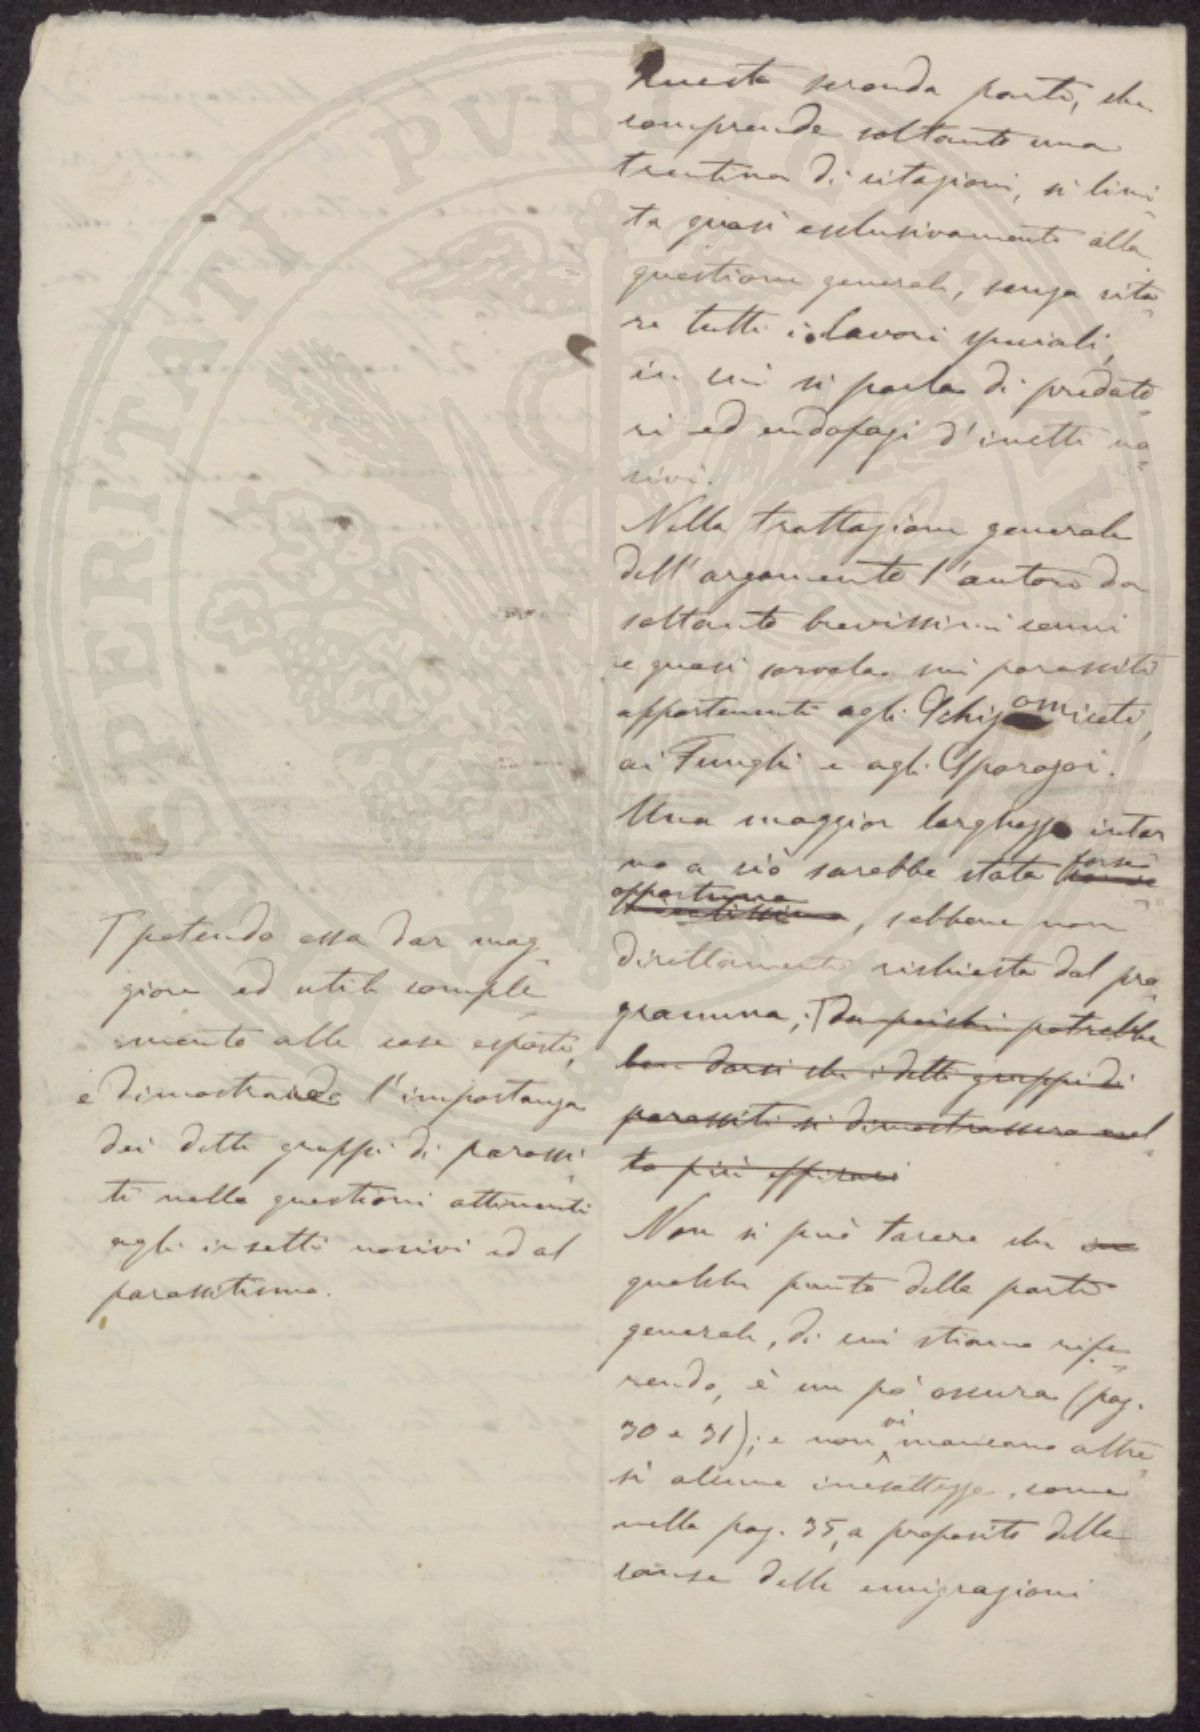 Questa seconda parte, che
comprende soltanto una
trentina di citazioni, si limi-
ta quasi esclusivamente alla
questione generale, senza cita-
re tutti i lavori speciali,
in cui si parla di predato-
ri ed endofagi d'insetti no-
civi.
Nella trattazione generale
dell'argomento l'autore da
soltanto brevissimi cenni
e quasi sorvola sui parassiti
appartenenti agli Schizomiceti,
ai Funghi e agli Sporozoi.
Una maggior larghezza intor
no a ciò sarebbe stata forse
opportuna, sebbene non
direttamente richiesta dal pro-
gramma; T da poichè potrebbe
ben darsi che i detti gruppi di
parassiti si dimostrassero mol-
to più efficaci
Non si può tacere che
qualche punto della parte
generale, di cui stiamo rife-
rendo, è un pò oscura (pag.
30 e 31); e non vi mancano altre-
sì alcune inesattezze, come
nella pag. 35, a proposito delle
cause delle emigrazioni
T potendo essa dar mag-
giore ed utile comple-
mento alle cose esposte,
e dimostrando l'importanza
dei detti gruppi di parassi-
ti nelle questioni attinenti
agli insetti nocivi ed al
parassitismo.
ASPERITATI PVBLICAE